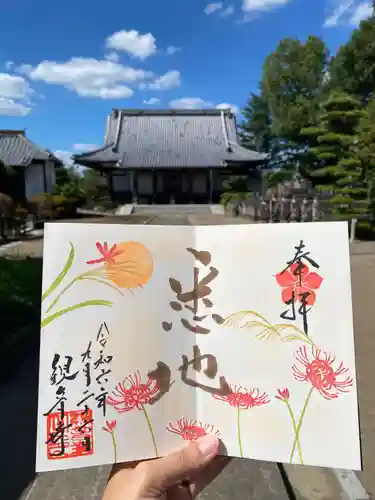 奉拝
悉地
令和六年
九月二十六日
観音寺